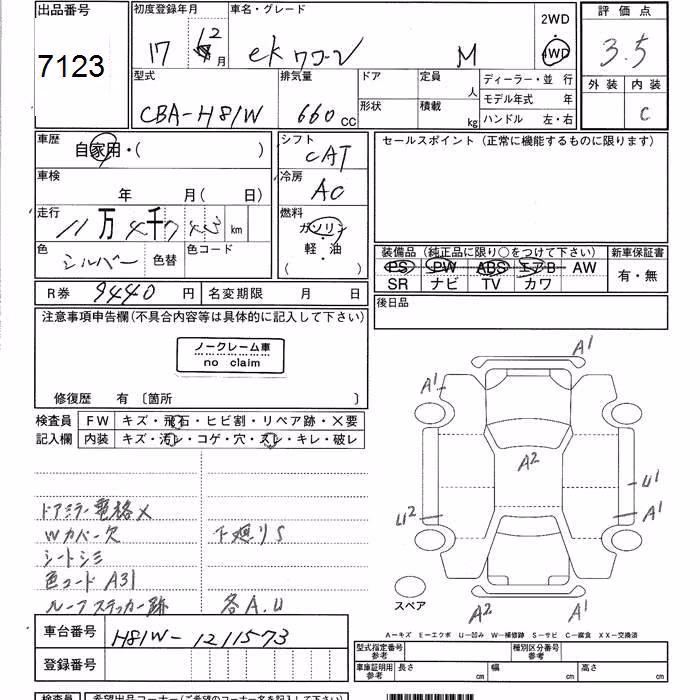 出品番号
7123
初度登録年月
17 年 12 月
車名・グレード
ekワゴン M
2WD
・
4WD
評価点
3.5
外装 内装
C
型式
CBA-H81W
排気量
660 CC
ドア
形状
定員
人
積載
kg
ディーラー・並 行
モデル年式 年
ハンドル 左・右
車歴
自家用・( )
シフト
CAT
セールスポイント(正常に機能するものに限ります)
車検
年 月( 日)
冷房
AC
走行
11万4千743 km
燃料
ガソリン
・
軽・油
( )
色
シルバー
色替
色コード
装備品(純正品に限り○をつけて下さい)
新車保証書
PS PW ABS エアB AW
SR ナビ TV カワ
有・無
R券 9440 円
名変期限 月 日
後日品
注意事項申告欄(不具合内容等は具体的に記入して下さい)
ノークレーム車
no claim
修復歴 有〔箇所 〕
検査員
記入欄
FW キズ・飛石・ヒビ割・リペア跡・X要
内装 キズ・汚レ・コゲ・穴・スレ・キレ・破レ
ドアミラー電格X
Wカバー欠
下廻りS
シートシミ
色コード A31
ルーフステッカー跡
各A.U
A1
A1
A2
U1
A1
U2
A2
A1
スペア
A−キズ E−エクボ U−凹み W−補修跡 S−サビ C−腐食 XX−交換済
車台番号
H81W-1211573
登録番号
型式指定番号
参考
種別区分番号
参考
車庫証明用
参考
長さ cm
幅 cm
高さ cm
検査員
希望出品コーナー(ご希望のコーナー名を記入して下さい)